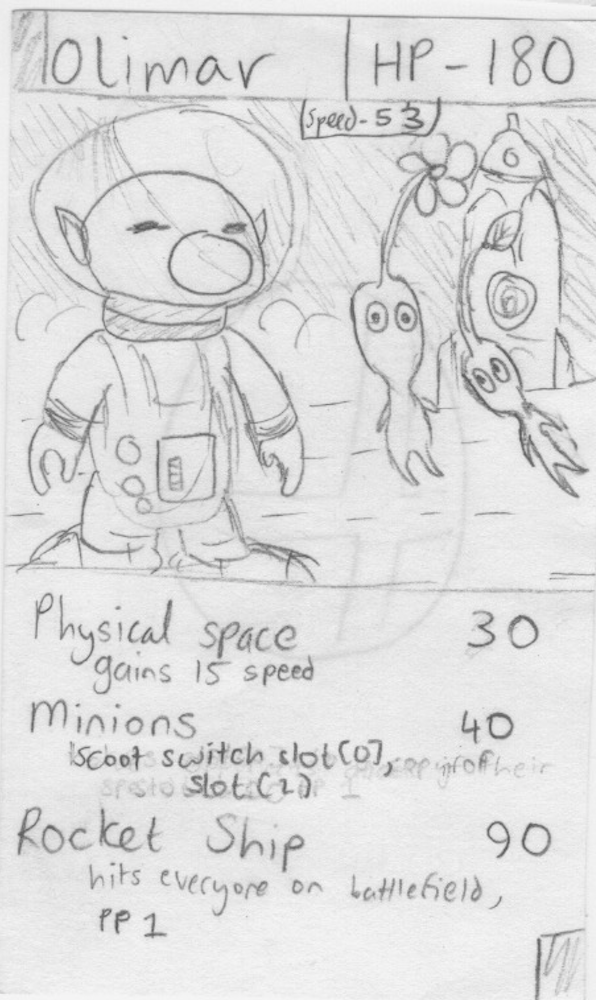 Olimar HP - 180
Speed - 53
Physical space 30
gains 15 speed
Minions 40
scoot switch slot(0),
slot(2)
Rocket Ship 90
hits everyone on battlefield,
PP 1